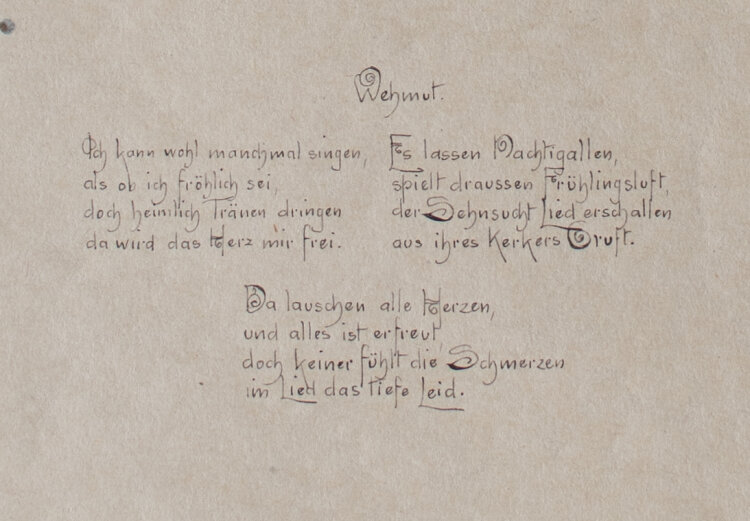 Wehmut.
Ich kann wohl manchmal singen,
als ob ich fröhlich sei,
doch heimlich Tränen dringen
da wird das Herz mir frei.
Es lassen Nachtigallen,
spielt draussen Frühlingsluft,
der Sehnsucht Lied erschallen
aus ihres Kerkers Gruft.
Da lauschen alle Herzen,
und alles ist erfreut,
doch keiner fühlt die Schmerzen
im Lied das tiefe Leid.